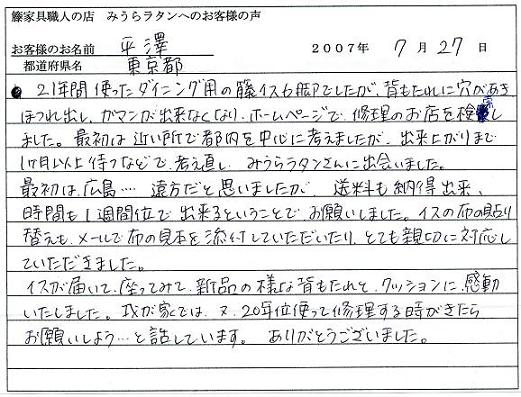 籐家具職人の店 みうらラタンへのお客様の声
お客様のお名前 平澤 2007年 7月27日
都道府県名 東京都
● 21年間使ったダイニング用の籐イス6脚でしたが、背もたれに穴があき
ほつれ出し、ガマンが出来なくなり、ホームページで、修理のお店を検索し
ました。最初は近い所で都内を中心に考えましたが、出来上がりまで
1ヶ月以上待つなどで、考え直し、みうらラタンさんに出会いました。
最初は、広島… 遠方だと思いましたが、送料も納得出来、
時間も1週間位で出来るということで、お願いしました。イスの布の貼り
替えも、メールで布の見本を流付していただいたり、とても親切に対応し
ていただきました。
イスが届いて、座ってみて、新品の様な背もたれと、クッションに、感動
いたしました。我が家では、又、20年位使って修理する時がきたら
お願いしよう…と話しています。 ありがとうございました。